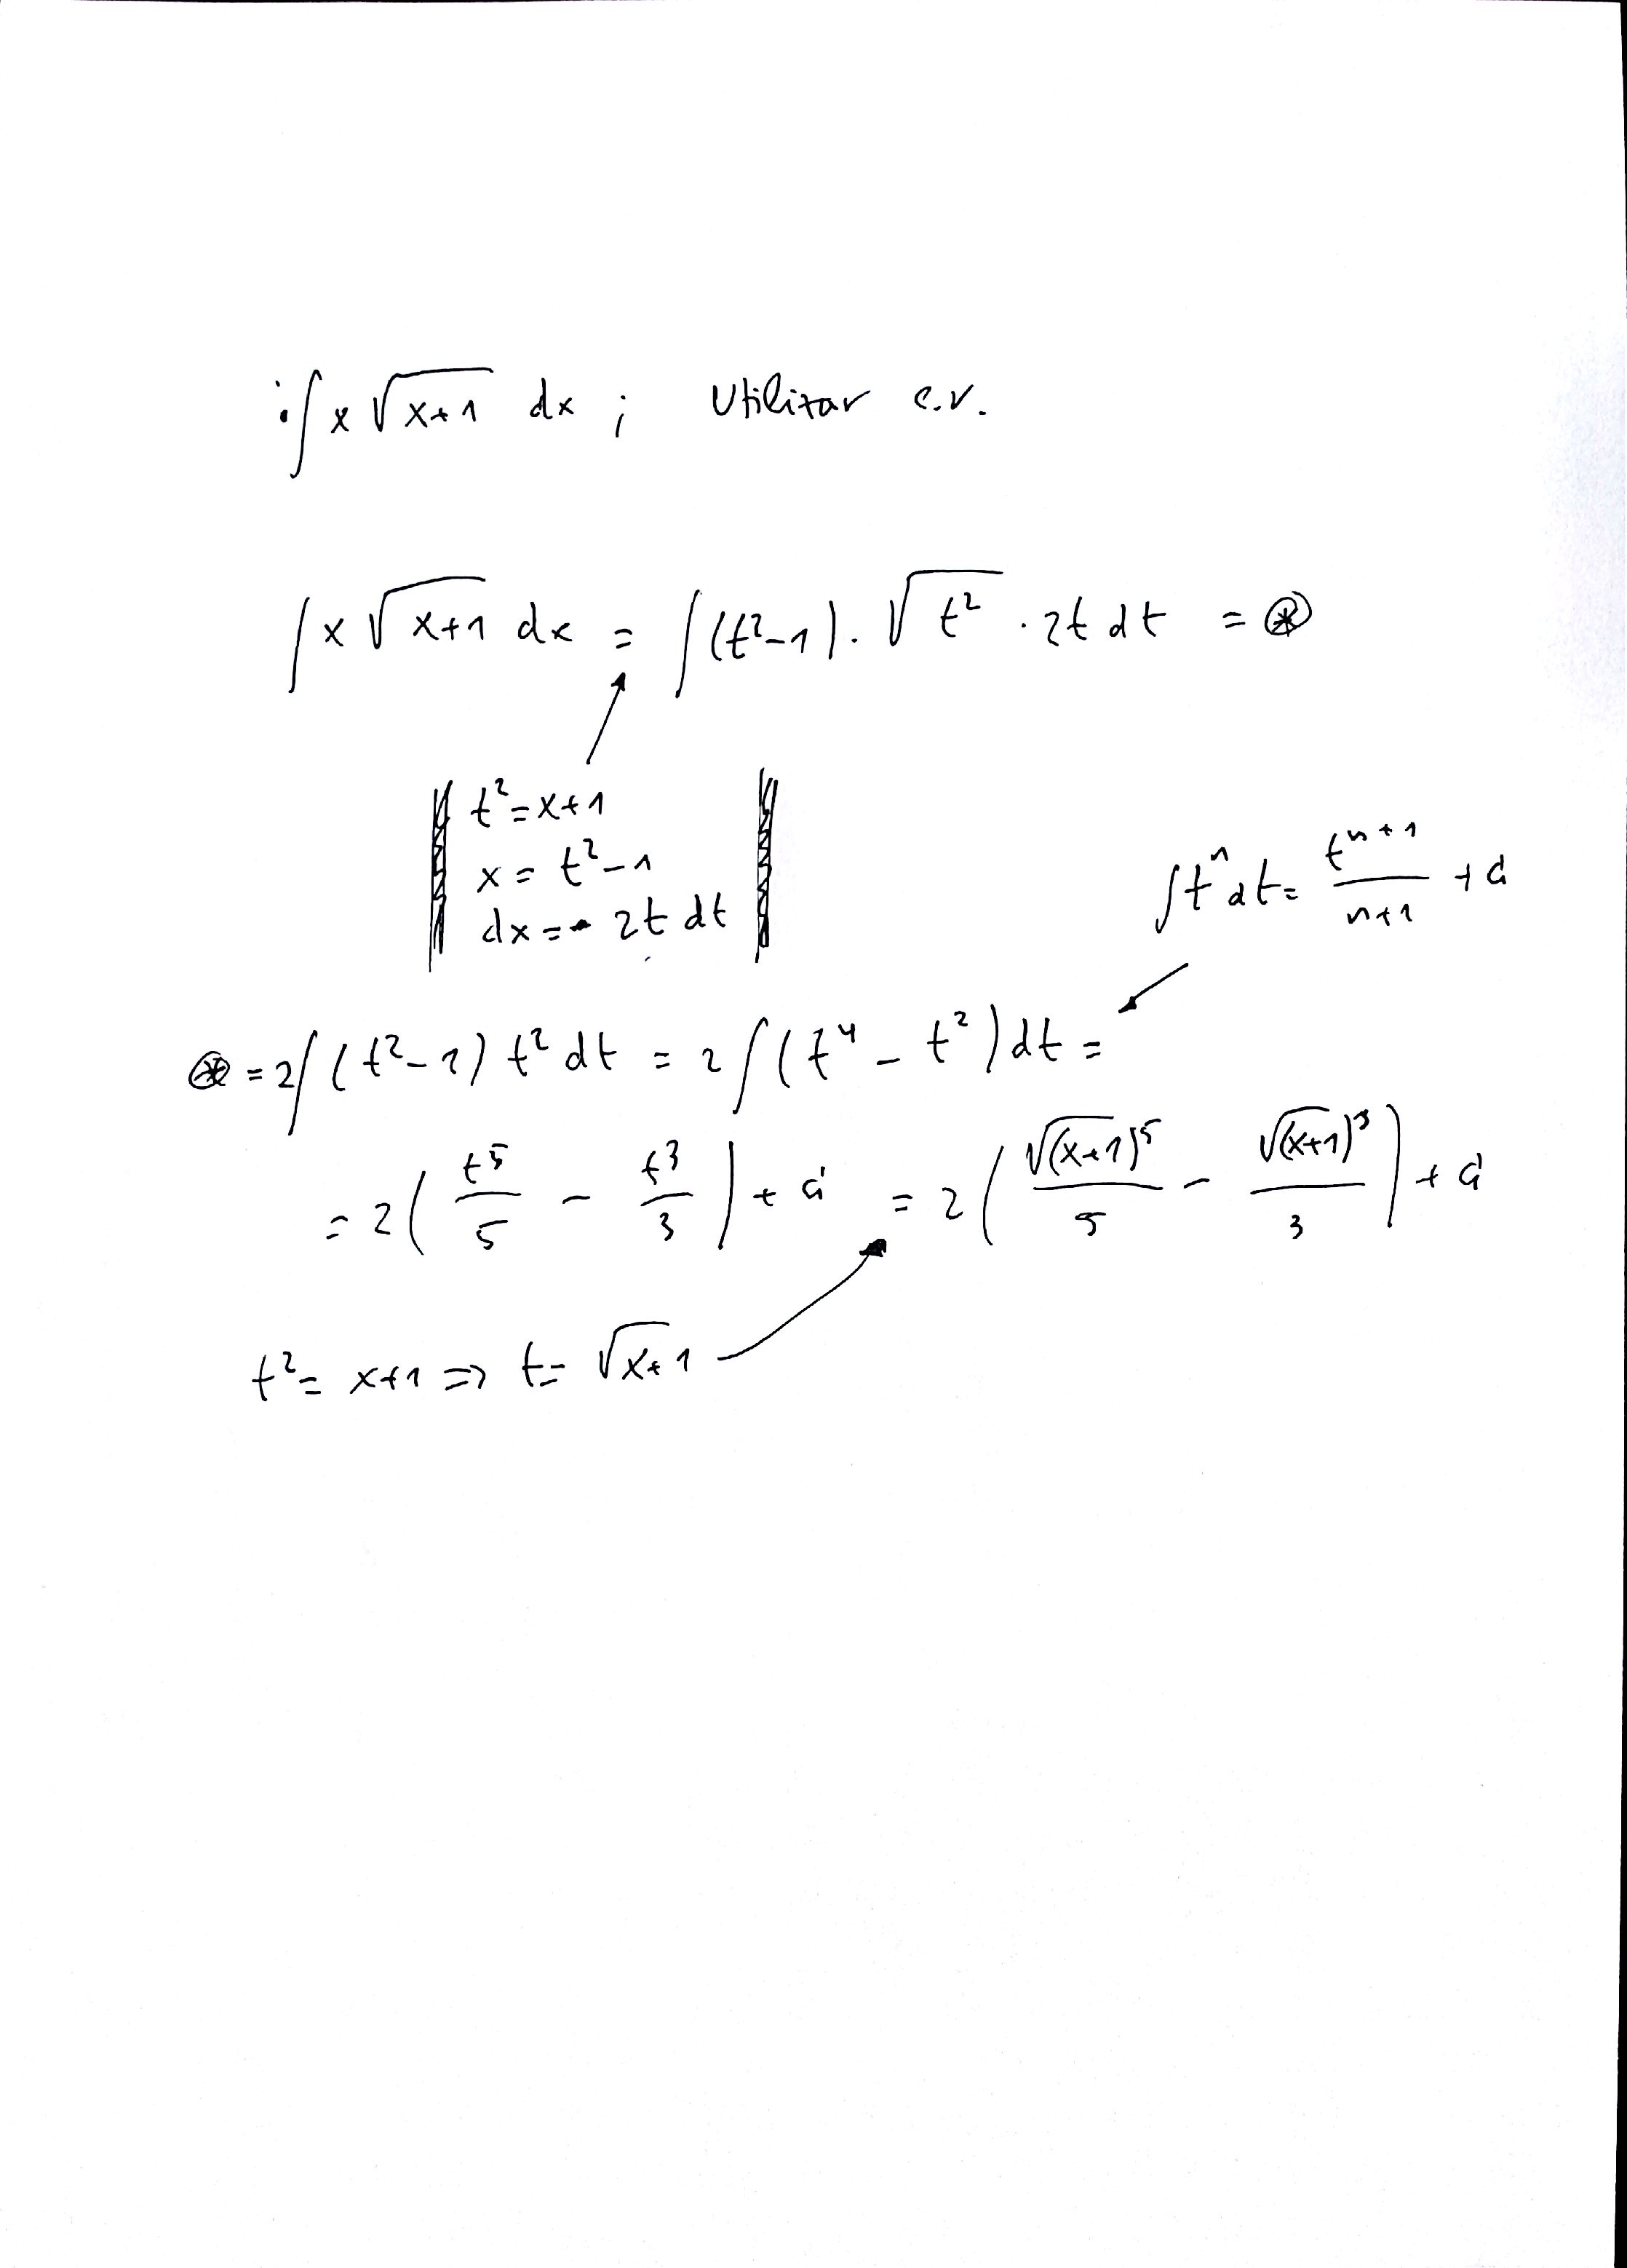 • ∫ x √(x+1) dx ; Utilizar c.v.
∫ x √(x+1) dx = ∫ (t²-1) · √(t²) · 2t dt = ⊛
t² = x+1
x = t²-1
dx = 2t dt
∫ tⁿ dt = tⁿ⁺¹/(n+1) + C
⊛ = 2 ∫ (t²-1) t² dt = 2 ∫ (t⁴ - t²) dt =
= 2 ( t⁵/5 - t³/3 ) + C = 2 ( √(x+1)⁵/5 - √(x+1)³/3 ) + C
t² = x+1 => t = √(x+1)